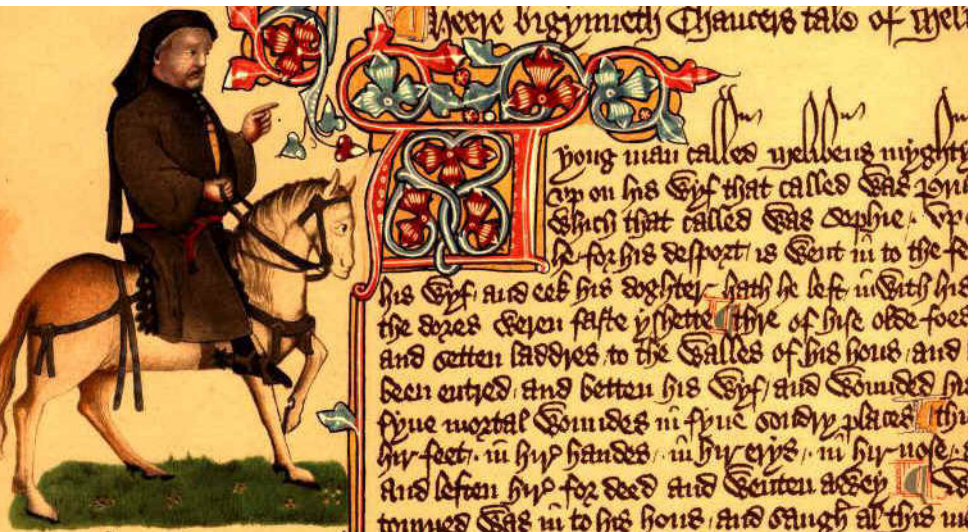 Heere bigynneth Chaucers tale of Mel
A yong man called Melibeus myghty
vp on his wyf that called was Pru
which that called was Sophie / vp
he for his desport is went in to the fe
his wyf / and eek his doghter hath he left inwith his
the dores weren faste yshette / thre of hise olde foes
and setten laddres to the walles of his hous / and
been entred / and betten his wyf / and wounded hi
fyue mortal woundes in fyue sondry places thi
hir feet / in hir handes / in hir erys / in hir nose /
and leften hir for deed and wenten awey W
tourned was in to his hous / and saugh al this me